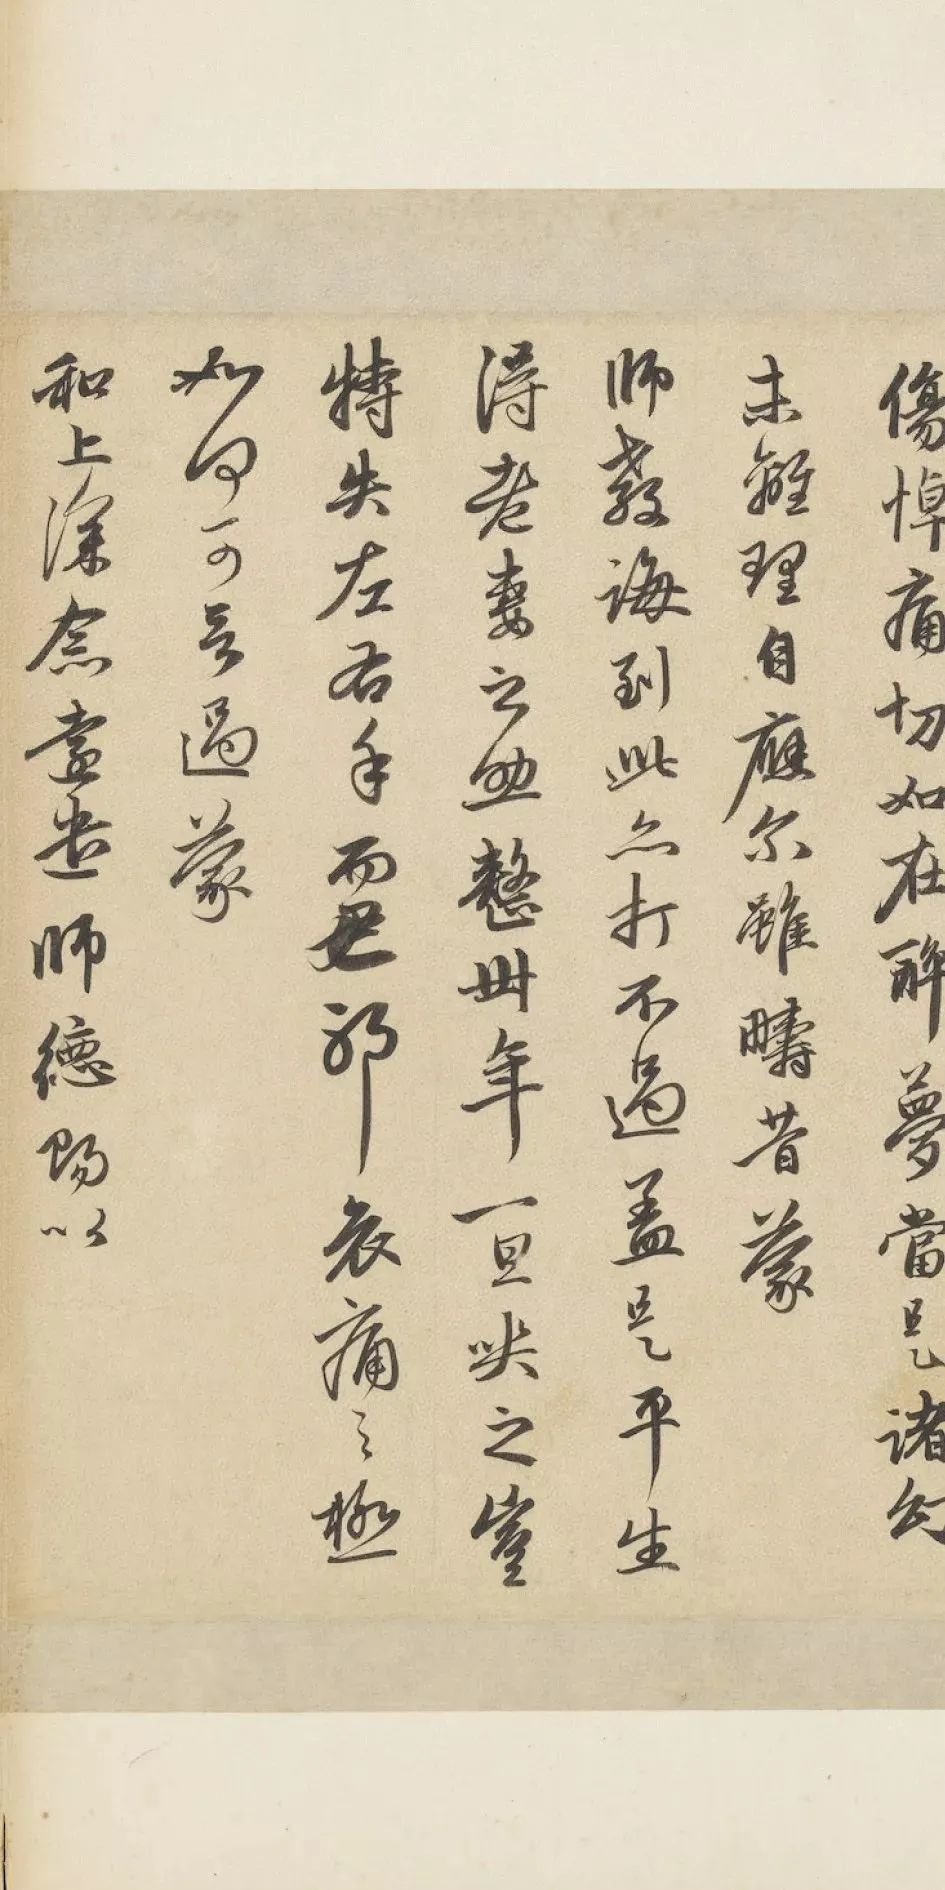 傷悼痛切如在醉夢當是諸幻
未離理自應尔雖疇昔蒙
師教誨到此亦打不過蓋是平生
得老妻之助整卅年一旦哭之豈
特失左右手而已耶哀痛之極
如何可言過蒙
和上深念遠遣師德賜以